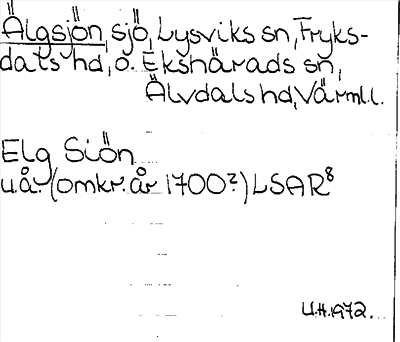 Älgsjön, sjö, Lysviks sn, Fryks-
dals hd, o. Ekshärads sn,
Älvdals hd, Värml.l.
Elg Siön
u.å. (omkr. år 1700?) LSAR⁸
U.H. 1972.